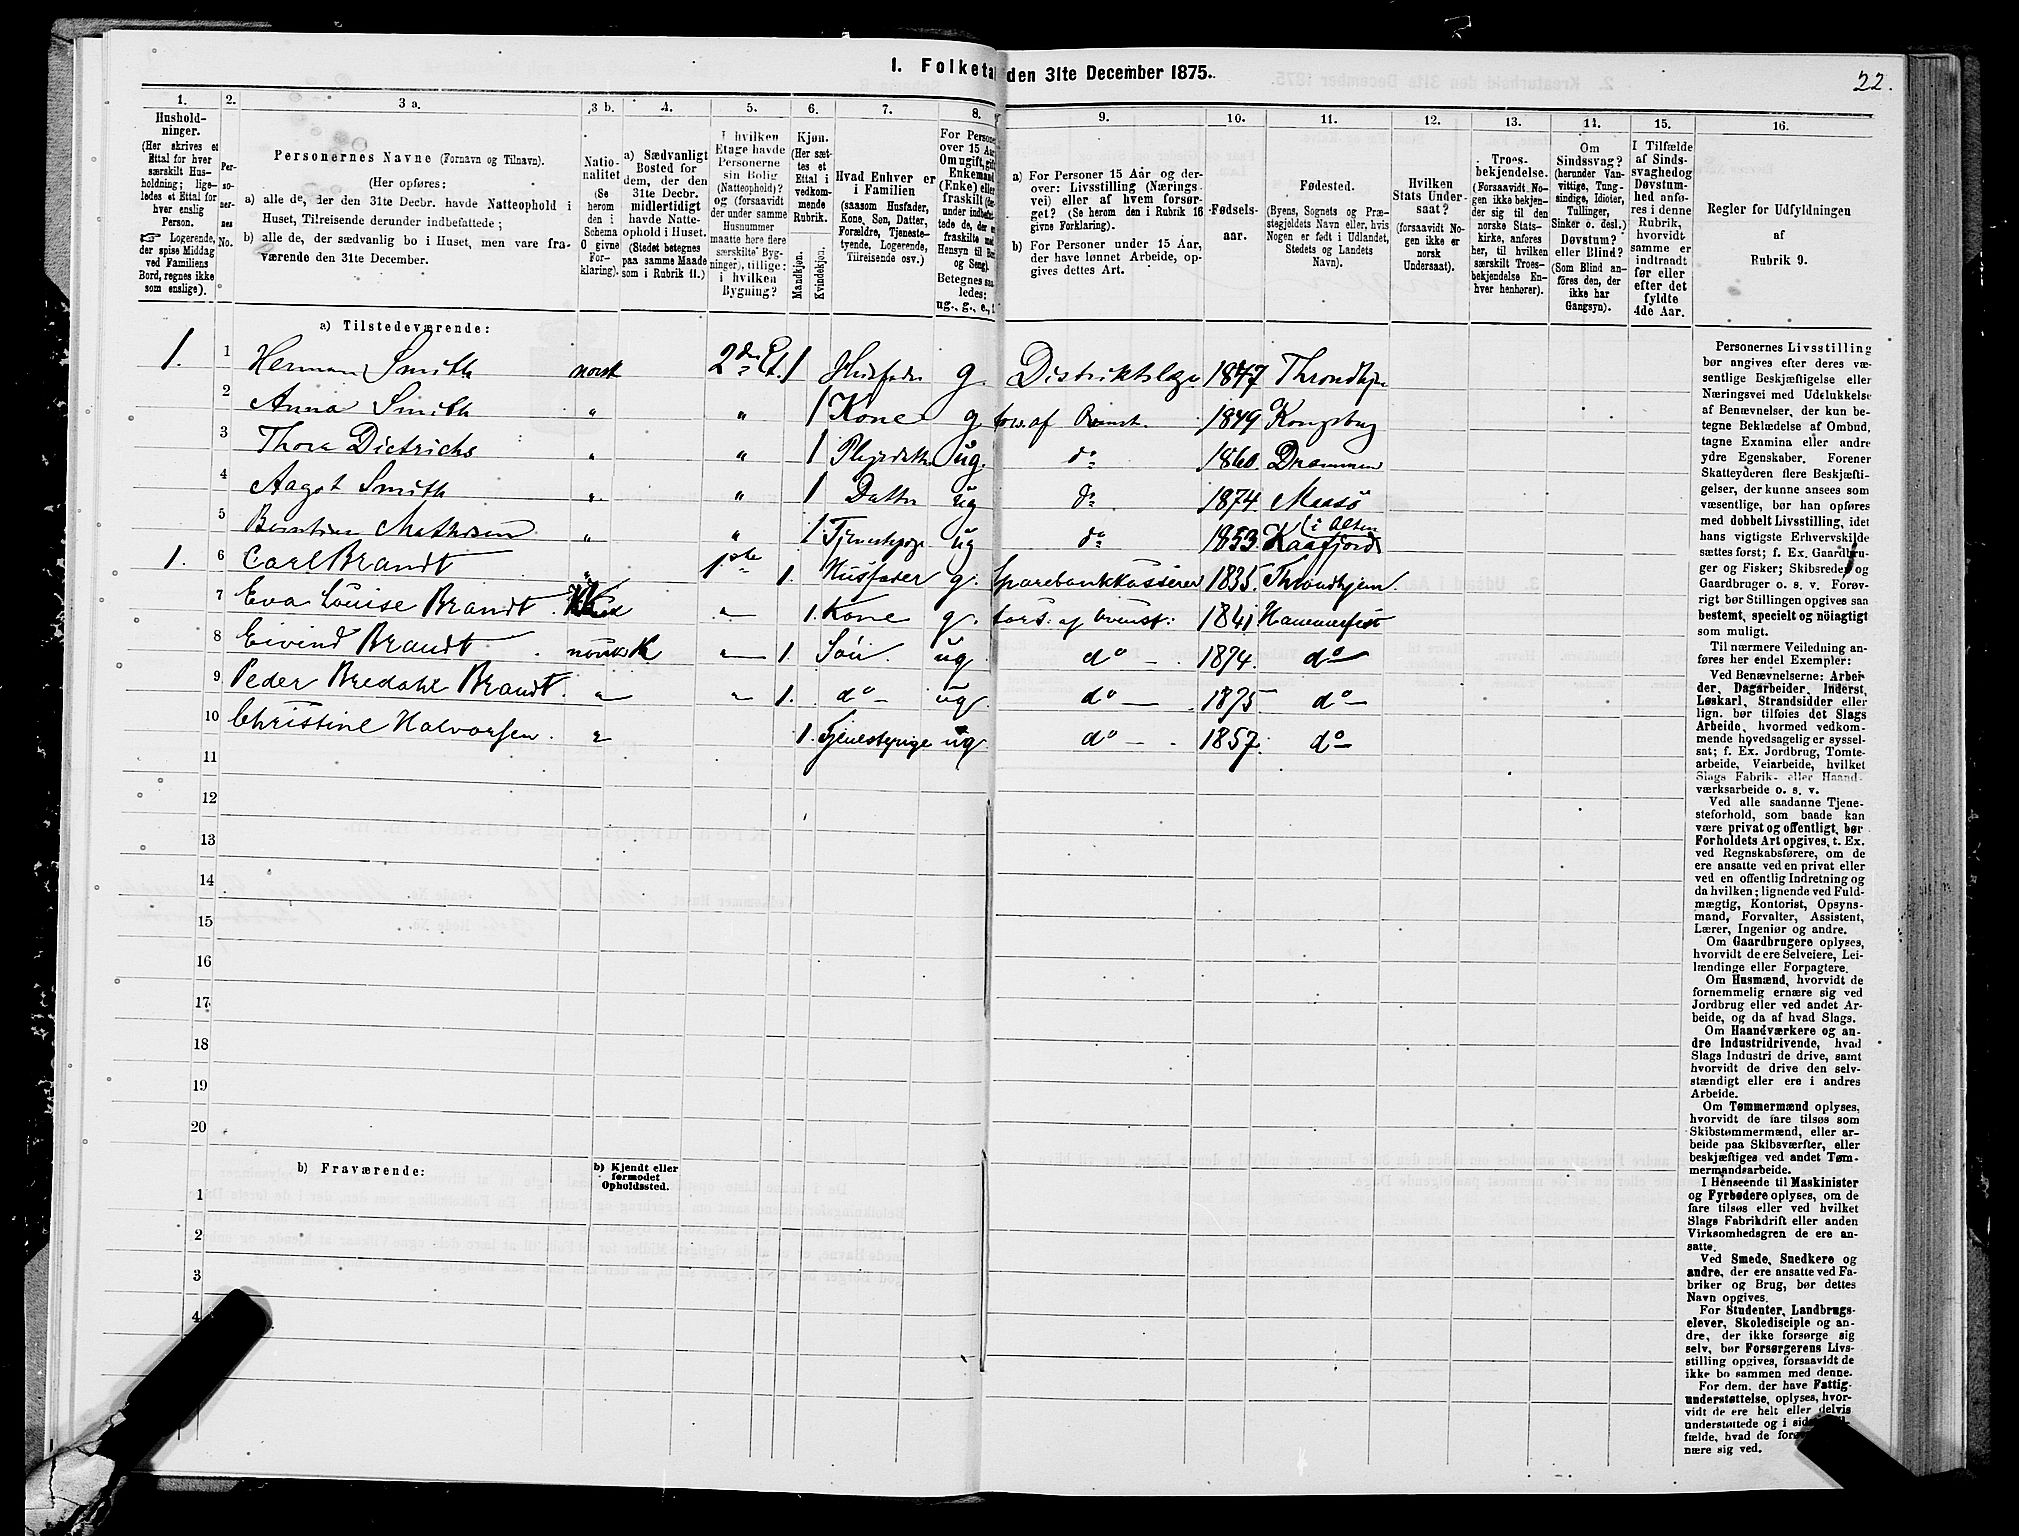 22.
1. Folketal den 31te December 1875.
1. Husholdninger. (Her skrives et Ettal for hver særskilt Husholdning; ligeledes et Ettal for hver enslig Person. Logerende, der spise Middag ved Familiens Bord, regnes ikke som enslige).
2. Personernes No.
3 a. Personernes Navne (Fornavn og Tilnavn).
(Her opføres:
a) alle de, der den 31te Decbr. havde Natteophold i Huset, Tilreisende derunder indbefattede;
b) alle de, der sædvanlig bo i Huset, men vare fraværende den 31te December.
3 b. Nationalitet (Se herom den i Schema O givne Forklaring).
4. a) Sædvanligt Bosted for dem, der den 31te Decbr. midlertidigt havde Natteophold i Huset. (Stedet betegnes paa samme Maade som i Rubrik 11.)
5. I hvilken Etage havde Personerne sin Bolig (Natteophold)? og (forsaavidt der under samme Husnummer maatte høre flere særskilte Bygninger), tillige: i hvilken Bygning?
6. Kjøn. (Her sættes et Ettal i vedkommende Rubrik. Mandkjøn. Kvindekjøn.
7. Hvad Enhver er i Familien (saasom Husfader, Kone, Søn, Datter, Forældre, Tjenestetyende, Logerende, Tilreisende osv.)
8. For Personer over 15 Aar: Om ugift, gift, Enkemand (Enke) eller fraskilt
Betegnes saaledes: ug., g., e., f.
9. a) For Personer 15 Aar og derover: Livsstilling (Næringsvei) eller af hvem forsørget? (Se herom den i Rubrik 16 givne Forklaring).
b) For Personer under 15 Aar, der have lønnet Arbeide, opgives dettes Art.
10. Fødselsaar.
11. Fødested. (Byens, Sognets og Præstegjeldets Navn eller, hvis Nogen er født i Udlandet, Stedets og Landets Navn).
12. Hvilken Stats Undersaat? (forsaavidt Nogen ikke er norsk Undersaat).
13. Troesbekjendelse. (Forsaavidt Nogen ikke bekjender sig til den norske Statskirke, anføres her, til hvilken særskilt Troesbekjendelse Enhver henhører).
14. Om Sindssvag? (herunder Vanvittige, Tungsindige, Idioter, Tullinger, Sinker o. desl.) Døvstum? eller Blind? (Som Blind anføres den, der ikke har Gangsyn).
15. I Tilfælde af Sindssvaghed og Døvstumhed anføres i denne Rubrik, hvorvidt samme er indtraadt før eller efter det fyldte 4de Aar.
16. Regler for Udfyldningen af Rubrik 9.
a) Tilstedeværende:
1. 1 Herman Smith norsk 2den Et. 1 Husfader g. Distriktslæge 1847 Throndhjem
2 Anna Smith " " 1 Kone g fors. af Ovenst. 1849 Kongsberg
3 Thora Dietrichs " " 1 Pleiedatter ug. do 1860 Drammen
4 Aagot Smith " " 1 Datter ug do 1874 Maasö
5 Mathisen " " 1 Tjenestepige ug do 1853 Kaafjord (i Alten
1. 6 Carl Brandt " 1ste 1. Husfader g. Sparebankkasserer 1835 Throndhjem.
7 Eva Louise Brandt " 1. Kone g. fors. af Ovenst: 1841 Hammerfest
8 Eivind Brandt norsk " 1. Søn ug do 1874. do
9 Peder Bredahl Brandt. " " 1. do ug do 1875 do
10 Christine Halvorsen " 1. Tjenestepige ug do 1857. do
11
12
13
14
15
16
17
18
19
20
b) Fraværende:
b) Kjendt eller formodet Opholdssted.
1
2
3
4
Personernes Livsstilling
bør angives efter deres væ-
sentlige Beskjæftigelse eller
Næringsvei med Udelukkelse
af Benævnelser, der kun be-
tegne Beklædelse af Ombud,
tagne Examina eller andre
ydre Egenskaber. Forener
Skatteyderen flere Beskjæfti-
gelser, der kunne ansees som
væsentlige, bør han opføres
med dobbelt Livsstilling, idet
hans vigtigste Erhvervskilde
sættes først; f. Ex. Gaardbru-
ger og Fisker; Skibsreder og
Gaardbruger o. s. v. Forøv-
rigt bør Stillingen opgives saa
bestemt, specielt og nöiagtigt
som muligt.
Til nærmere Veiledning an-
føres her endel Exempler:
Ved Benævnelserne: Arbei-
der, Dagarbeider, Inderst,
Løskarl, Strandsidder eller
lign. bør tilføies det Slags
Arbeide, hvormed vedkom-
mende hovedsagelig er syssel-
sat; f. Ex. Jordbrug, Tomte-
arbeide, Veiarbeide, hvilket
Slags Fabrik- eller Haand-
værksarbeide o. s. v.
Ved alle saadanne Tjene-
steforhold, som baade kan
være privat og offentligt, bør
Forholdets Art opgives, t. Ex.
ved Regnskabsførere, om de
ere ansatte ved en privat eller
ved en offentlig Indretning og
da hvilken; lignende ved Fuld-
mægtig, Kontorist, Opsyns-
mand, Forvalter, Assistent,
Lærer, Ingeniør og andre.
Om Gaardbrugere oplyses,
hvorvidt de ere Selveiere, Lei-
lændinge eller Forpagtere.
Om Husmænd, hvorvidt de
fornemmelig ernære sig ved
Jordbrug eller ved andet Ar-
beide, og da af hvad Slags.
Om Haandværkere og an-
dre Industridrivende, hvad
Slags Industri de drive, samt
hvorvidt de drive den selv-
stændigt eller ere i andres
Arbeide.
Om Tømmermænd oplyses,
hvorvidt de fare tilsøs som
Skibstømmermænd, eller ar-
beide paa Skibsværfter, eller
beskjæftiges ved andet Tøm-
mermandsarbeide.
I Henseende til Maskinister
og Fyrbødere oplyses, om de
fare tilsøs eller ved hvilket
Slags Fabrikdrift eller anden
Virksomhedsgren de ere an-
satte.
Ved Smede, Snedkere og
andre, der ere ansatte ved Fa-
briker og Brug, bør dettes
Navn opgives.
For Studenter, Landbrugs-
elever, Skoledisciple og an-
dre, der ikke forsørge sig
selv, bør Forsørgerens Livs-
stilling opgives, forsaavidt de
ikke bo sammen med denne.
For dem, der have Fattig-
understøttelse, oplyses, hvor-
vidt de ere helt eller delvis
understøttede og i
fælde, hvad de
nære sig ved.